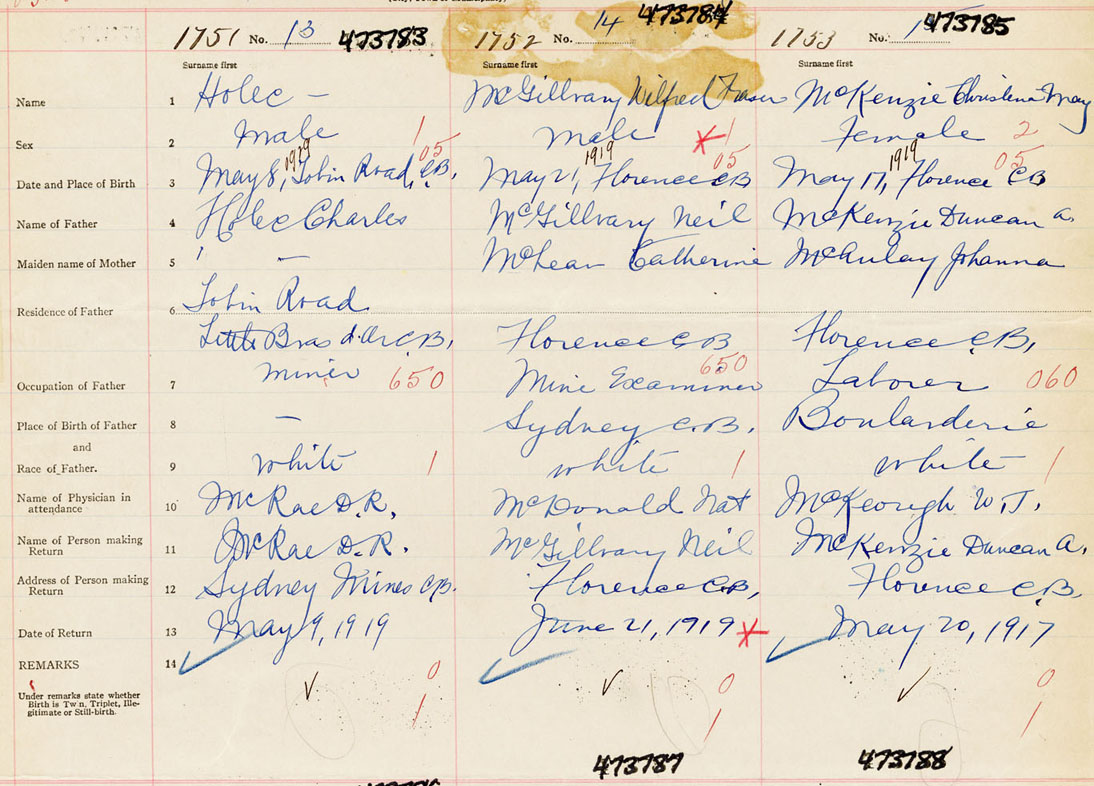 1751 No. 13 473783
1752 No. 14 473784
1753 No. 473785
Surname first Surname first Surname first
Name 1 Holec — McGillvary Wilfred Fraser McKenzie Christena May
Sex 2 Male 1 Male X 1 Female 2
Date and Place of Birth 3 May 8, 1919 Tobin Road, C.B. 05 May 21, 1919 Florence C B 05 May 17, 1919 Florence C B 05
Name of Father 4 Holec Charles McGillvary Neil McKenzie Duncan A.
Maiden name of Mother 5 — McLean Catherine McAulay Johanna
Residence of Father 6 Tobin Road
Little Bras d'Or C.B. Florence C B Florence C.B.
Occupation of Father 7 Miner 650 Mine Examiner 650 Laborer 060
Place of Birth of Father 8 — Sydney C.B. Boularderie
and
Race of Father. 9 White 1 White 1 White 1
Name of Physician in
attendance 10 McRae D.R. McDonald Nat McKeough W.J.
Name of Person making
Return 11 McRae D.R. McGillvary Neil McKenzie Duncan A.
Address of Person making
Return 12 Sydney Mines C.B. Florence C.B. Florence C.B.
Date of Return 13 May 9, 1919 June 21, 1919 X May 20, 1917
REMARKS 14
0 0 0
Under remarks state whether
Birth is Twin, Triplet, Ille-
gitimate or Still-birth.
1 1 1
473787 473788